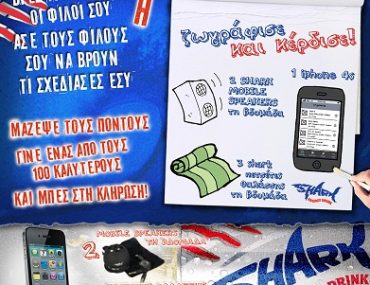 ΟΙ ΦΙΛΟΙ ΣΟΥ
ΑΣΕ ΤΟΥΣ ΦΙΛΟΥΣ
ΣΟΥ ΝΑ ΒΡΟΥΝ
ΤΙ ΣΧΕΔΙΑΣΕΣ ΕΣΥ
Ή
ΜΑΖΕΨΕ ΤΟΥΣ ΠΟΝΤΟΥΣ
ΓΙΝΕ ΕΝΑΣ ΑΠΟ ΤΟΥΣ
100 ΚΑΛΥΤΕΡΟΥΣ
ΚΑΙ ΜΠΕΣ ΣΤΗ ΚΛΗΡΩΣΗ!
ζωγράφισε
και κέρδισε!
2 SHARK
MOBILE
SPEAKERS
τη βδομάδα
1 iphone 4s
3 shark
πετσέτες
θαλάσσης
τη βδομάδα
SHARK
2 MOBILE SPEAKERS
ΤΗ ΒΔΟΜΑΔΑ
SHARK
DRINK